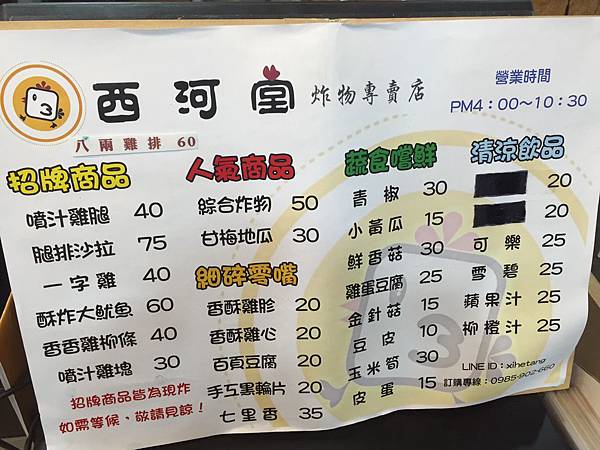 西河堂 炸物專賣店
營業時間
PM4:00～10:30
八兩雞排 60
招牌商品
噴汁雞腿 40
腿排沙拉 75
一字雞 40
酥炸大魷魚 60
香香雞柳條 40
噴汁雞塊 30
招牌商品皆為現炸
如需等候,敬請見諒!
人氣商品
綜合炸物 50
甘梅地瓜 30
細碎零嘴
香酥雞胗 20
香酥雞心 20
百頁豆腐 20
手工黑輪片 20
七里香 35
蔬食嚐鮮
青椒 30
小黃瓜 15
鮮香菇 30
雞蛋豆腐 25
金針菇 15
豆皮 10
玉米筍 30
皮蛋 15
清涼飲品
20
20
可樂 25
雪碧 25
蘋果汁 25
柳橙汁 25
LINE ID:xihetang
訂購專線:0985-902-660